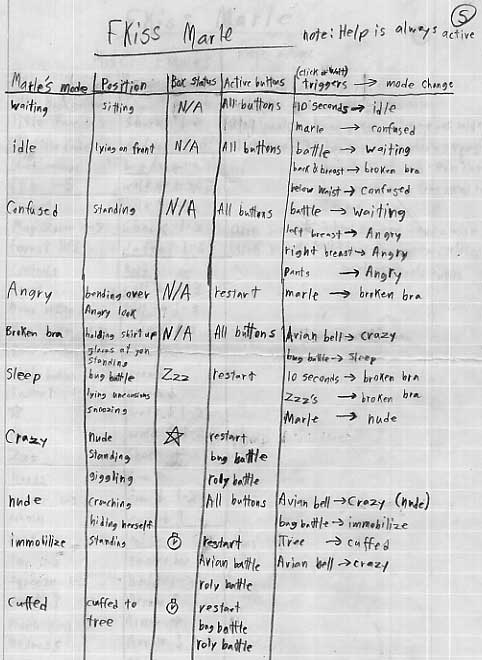 5
FKiss Marle
note: Help is always active
(click or wait)
Marle's mode Position Box Status Active buttons triggers → mode change
waiting sitting N/A All buttons 10 seconds → idle
marle → confused
idle lying on front N/A All buttons battle → waiting
back & breast → broken bra
below waist → confused
Confused Standing N/A All buttons battle → waiting
left breast → Angry
right breast → Angry
pants → Angry
Angry bending over N/A restart marle → broken bra
Angry look
Broken bra holding shirt up N/A All buttons Avian bell → crazy
glares at you
standing bug battle → sleep
Sleep bug battle Zzz restart 10 seconds → broken bra
lying unconscious Zzz's → broken bra
snoozing Marle → nude
Crazy nude restart
Standing bug battle
giggling roly battle
nude crouching All buttons Avian bell → Crazy (nude)
hiding herself bug battle → immobilize
immobilize standing restart Tree → cuffed
Avian battle Avian bell → crazy
roly battle
Cuffed cuffed to restart
tree bug battle
roly battle